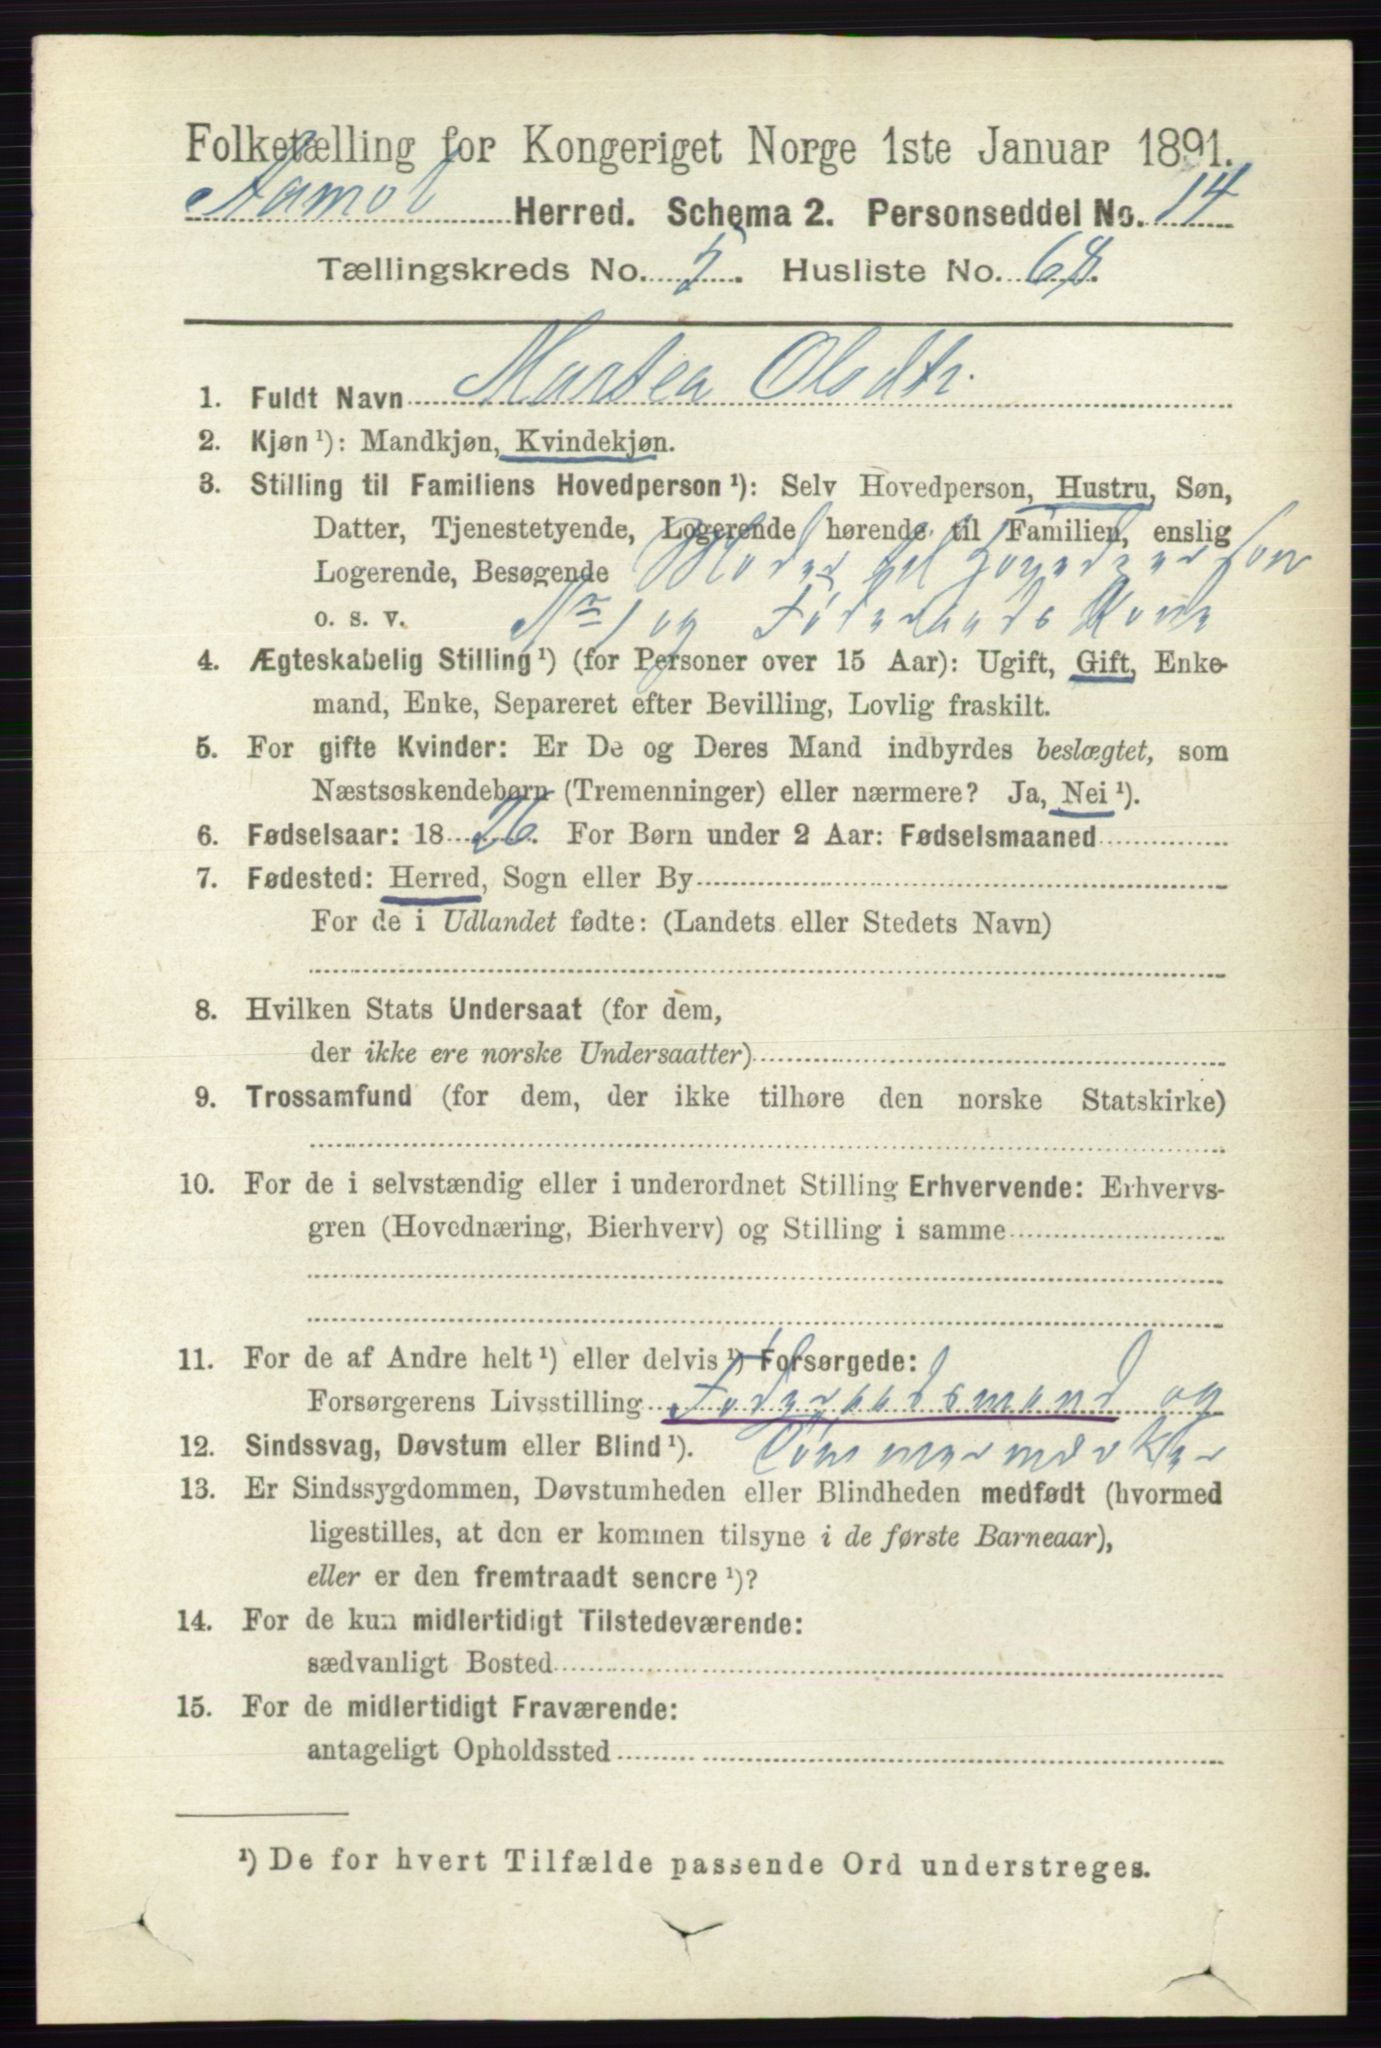 Folketælling for Kongeriget Norge 1ste Januar 1891.
Aamot Herred. Schema 2. Personseddel No. 14
Tællingskreds No. 5. Husliste No. 68.
1. Fuldt Navn Martea Olsdtr.
2. Kjøn ¹): Mandkjøn, Kvindekjøn.
3. Stilling til Familiens Hovedperson ¹): Selv Hovedperson, Hustru, Søn,
Datter, Tjenestetyende, Logerende hørende til Familien, enslig
Logerende, Besøgende Moder til Hovedperson
o. s. v. Nr 1 og Føderaads Kone
4. Ægteskabelig Stilling ¹) (for Personer over 15 Aar): Ugift, Gift, Enke-
mand, Enke, Separeret efter Bevilling, Lovlig fraskilt.
5. For gifte Kvinder: Er De og Deres Mand indbyrdes beslægtet, som
Næstsøskendebørn (Tremenninger) eller nærmere? Ja, Nei ¹).
6. Fødselsaar: 18 26. For Børn under 2 Aar: Fødselsmaaned
7. Fødested: Herred, Sogn eller By
For de i Udlandet fødte: (Landets eller Stedets Navn)
8. Hvilken Stats Undersaat (for dem,
der ikke ere norske Undersaatter)
9. Trossamfund (for dem, der ikke tilhøre den norske Statskirke)
10. For de i selvstændig eller i underordnet Stilling Erhvervende: Erhvervs-
gren (Hovednæring, Bierhverv) og Stilling i samme
11. For de af Andre helt ¹) eller delvis ¹) Forsørgede:
Forsørgerens Livsstilling Føderaadsmand og
12. Sindssvag, Døvstum eller Blind ¹). Tømmermærker
13. Er Sindssygdommen, Døvstumheden eller Blindheden medfødt (hvormed
ligestilles, at den er kommen tilsyne i de første Barneaar),
eller er den fremtraadt senere ¹)?
14. For de kun midlertidigt Tilstedeværende:
sædvanligt Bosted
15. For de midlertidigt Fraværende:
antageligt Opholdssted
¹) De for hvert Tilfælde passende Ord understreges.